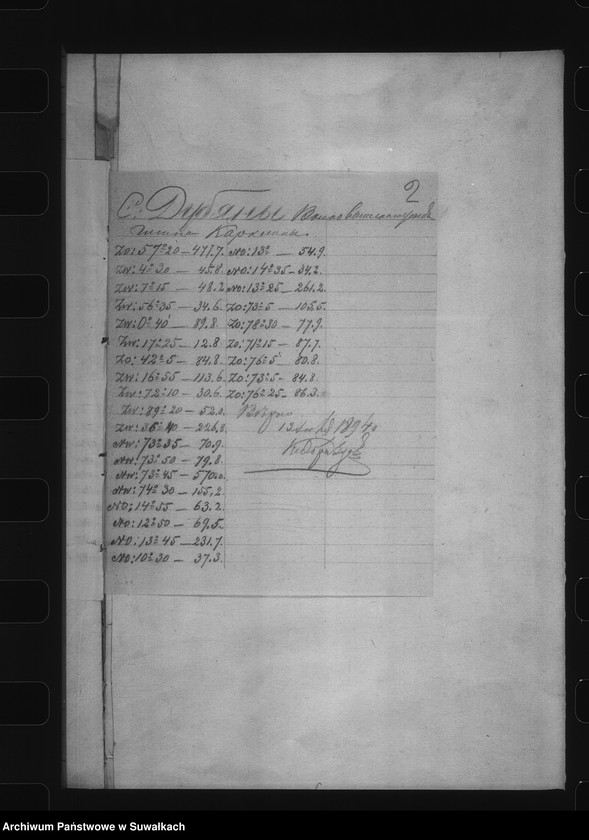 2
С. Дубяны
гмины
Zo: 57° 20 — 477.7. NO: 13° — 54.9.
Zw: 4° 30 — 45.8. NO: 14° 35 — 34.2.
Zw: 7° 15 — 48.2 NO: 13° 25 — 261.2.
Zw: 56° 35 — 34.6. Zo: 73° 5 — 105.5.
Zw: 0° 40 — 89.8. Zo: 78° 30 — 77.9.
Zw: 17° 25 — 12.8 Zo: 71° 15 — 87.7.
Zo: 42° 5 — 84.8. Zo: 76° 5 — 80.8.
Zw: 16° 55 — 113.6. Zo: 73° 5 — 84.8.
Zw: 72° 10 — 30.6. Zo: 76° 25 — 86.3.
Zw: 89° 20 — 52.0. Верно
Zw: 36° 40 — 226.8. 13 1894
Nw: 73° 35 — 70.9.
Nw: 73° 50 — 79.8.
Nw: 73° 45 — 570.0.
Nw: 74° 30 — 155.2.
NO: 14° 55 — 63.2.
NO: 12° 50 — 69.5.
NO: 13° 45 — 231.7.
NO: 10° 30 — 37.3.
Archiwum Państwowe w Suwałkach